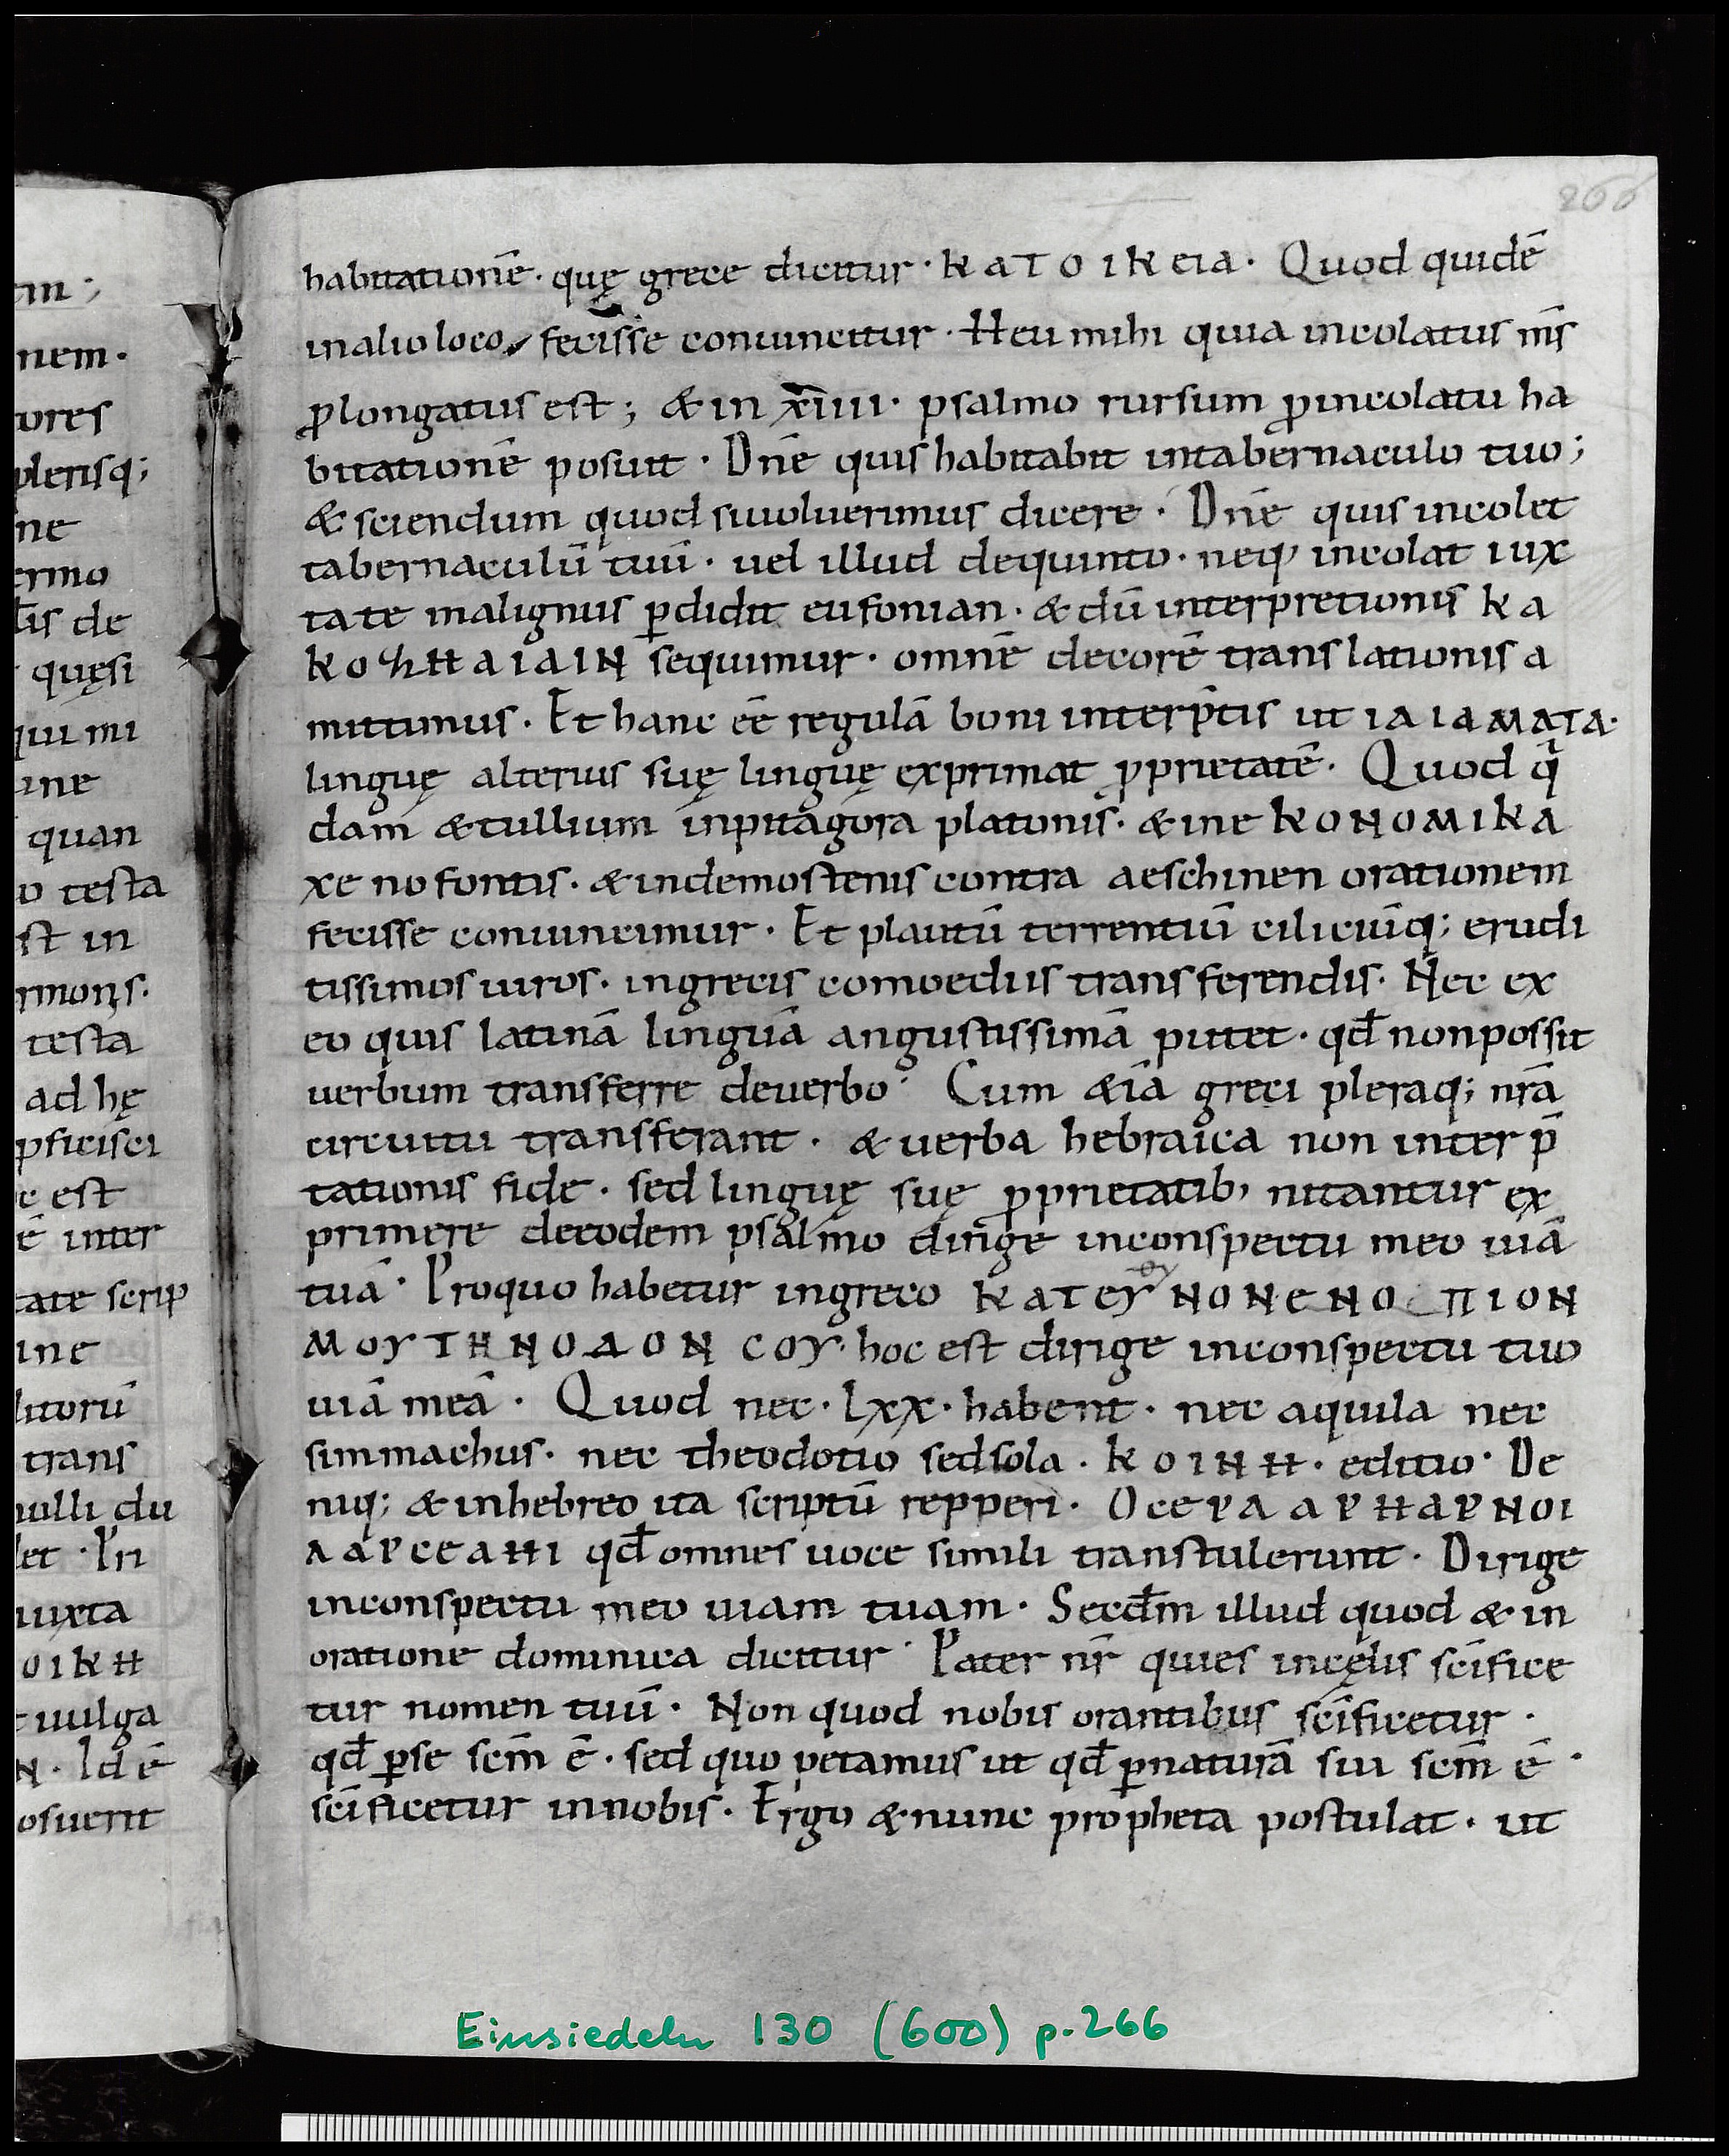 266
habitationē· quę grece dicitur· KATOIKEIA· Quod quidē
inalio loco fecisse conuincitur· Heu mihi quia incolatus m̄s
ꝓlongatus est; & in xiiii· psalmo rursum ꝓincolatu ha
bitationē posuit· Dn̄e quis habitabit intabernaculo tuo;
& sciendum quod siuoluerimus dicere· Dn̄e quis incolet
tabernaculū tuū· uel illud dequinto· neq; incolat iux
ta te malignus ꝑdidit eufonian· & dū interpretionis KA
sequimur· omnē decorē translationis a
mittimus· Et hanc eē regulā boni interp̄tis ut IAIAMATA·
linguę alterius suę linguę exprimat ꝓprietatē· Quod q̄
dam & tullium inpitagora platonis· & ine KONOMIKA
xenofontis· & indemostenis contra aeschinen orationem
fecisse conuincimur· Et plautū terrentiū ciliciūq; erudi
tissimos uiros· ingrecis comoediis transferendis· Nec ex
eo quis latinā linguā angustissimā putet· qd̄ nonpossit
uerbum transferre deuerbo· Cum &iā greci pleraq; nr̄a
circuitu transferant· & uerba hebraica non interp̄
tationis fide· sed linguę suę ꝓprietatib; nitantur ex
primere deeodem psalmo dirige inconspectu meo uiā
tuā· Proquo habetur ingreco KATEY NONENO ΠION
MOYTHNOΔON COY· hoc est dirige inconspectu tuo
uiā meā· Quod nec· Lxx· habent· nec aquila nec
simmachus· nec theodotio sedsola· KOINH· editio· De
niq; & inhebreo ita scriptū repperi· OCEPA APHAPNOI
ΛAPCEAHI qd̄ omnes uoce simili transtulerunt· Dirige
inconspectu meo uiam tuam· Secd̄m illud quod & in
oratione dominica dicitur· Pater nr̄ quies incęlis scīfice
tur nomen tuū· Non quod nobis orantibus scīficetur·
qd̄ ꝑse scm̄ ē· sed quo petamus ut qd̄ ꝑnaturā sui scm̄ ē·
scīficetur innobis· Ergo & nunc propheta postulat· ut
Einsiedeln 130 (600) p. 266